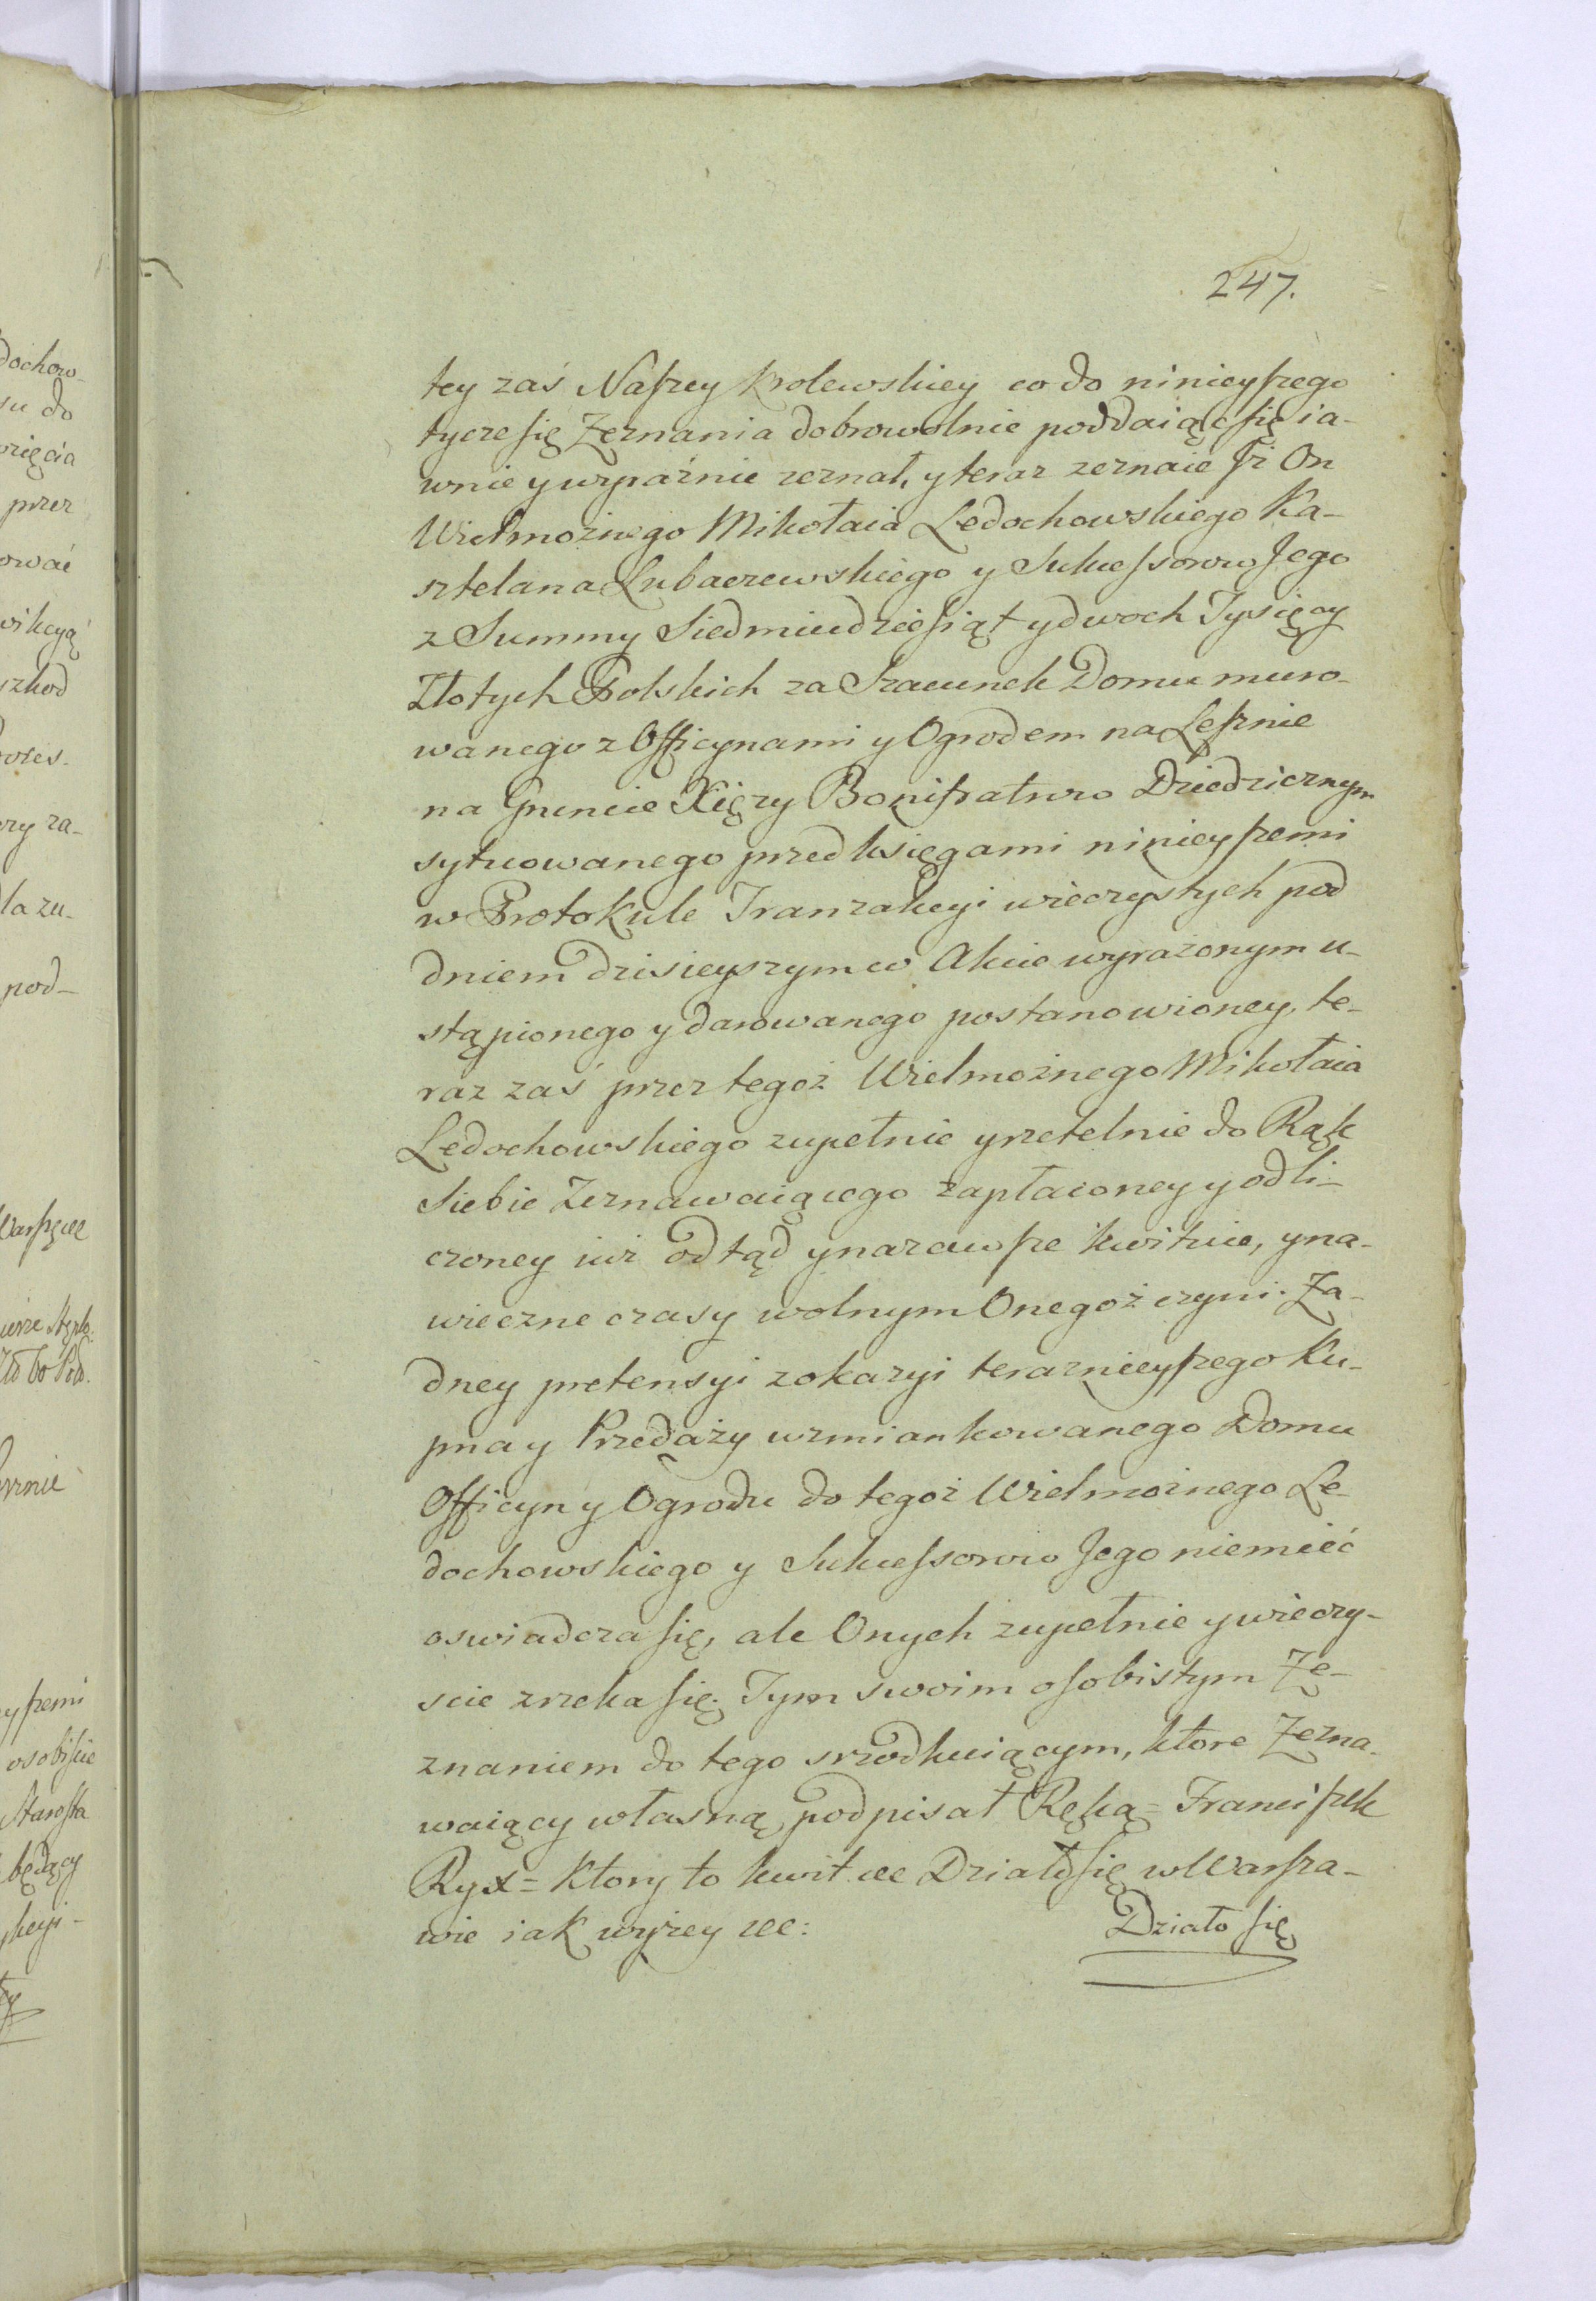 247.
tey zaś Naszey Krolewskiey co do ninieyszego
tycze się Zeznania dobrowolnie poddaiąc się ia-
wnie y wyraźnie zeznał, y teraz zeznaie Jż On
Wielmożnego Mikołaia Ledochowskiego Ka-
sztelana Lubaczewskiego y Sukcessorow Jego
z Summy Siedmiudziesiąt y dwoch Tysięcy
Złotych Polskich za Szacunek Domu muro-
wanego z Officynami y Ogrodem na Lesznie
na Gruncie Xięży Bonifratrow Dziedzicznym
sytuowanego przed księgami ninieyszemi
w Protokule Tranzakcyi wieczystych pod
dniem dzisieyszym w Akcie wyrażonym u-
stąpionego y darowanego postanowioney, te-
raz zaś przez tegoż Wielmożnego Mikołaia
Ledochowskiego zupełnie y rzetelnie do Rąk
Siebie Zeznawaiącego zapłaconey y odli-
czoney iuż odtąd y nazawsze kwituie, y na-
wieczne czasy wolnym Onegoż czyni. Ża-
dney pretensyi z okazyi teraznieyszego Ku-
pna y Przedaży wzmiankowanego Domu
Officyn y Ogrodu do tegoż Wielmożnego Le-
dochowskiego y Sukcessorow Jego niemieć
oswiadcza się, ale Onych zupełnie y wieczy-
scie zrzeka się. Tym swoim osobistym Ze-
znaniem do tego srzodkuiącym, ktore Zezna-
waiący własną podpisał Ręką = Franciszek
Ryx = Ktory to kwit etc Działo się w Warsza-
wie iak wyżey etc:
Działo się
dochow-
su do
przez
ować
wikcyą
szkod
pod-
yszemi
osobiście
Starosta
będący